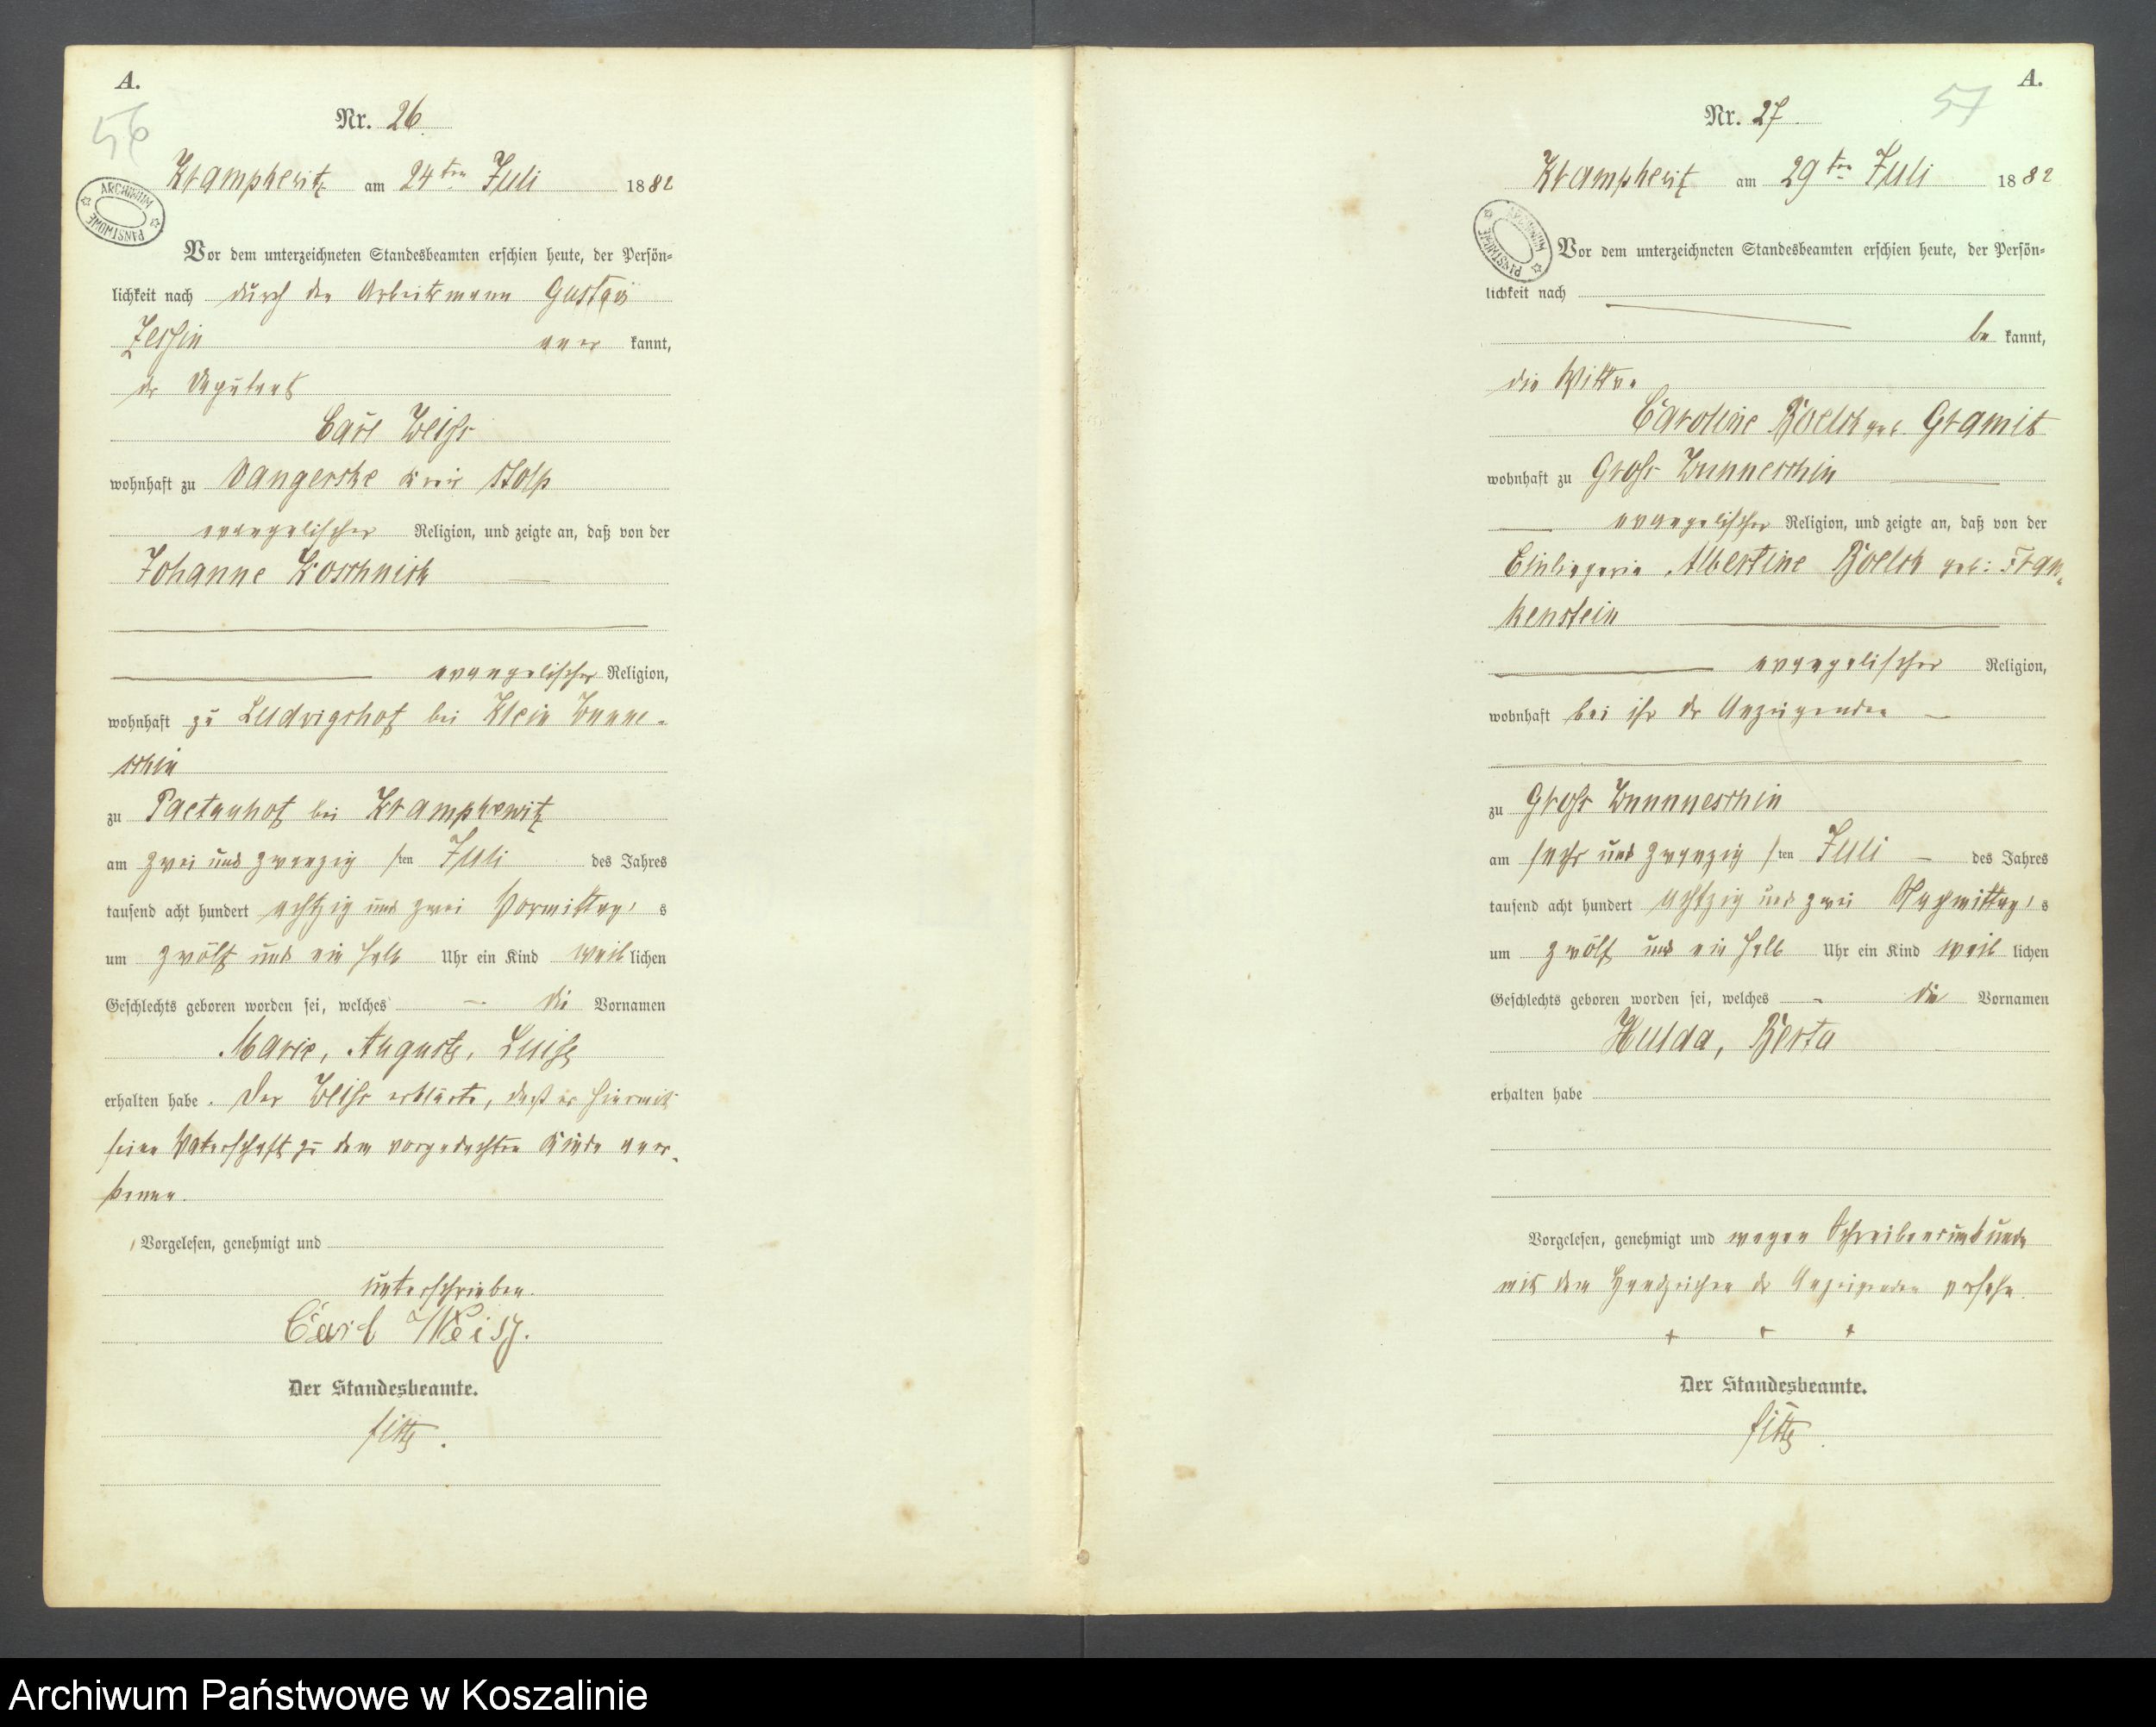 A.
56
Nr. 26.
Krampkewitz am 24ten Juli 1882
ARCHIWUM PAŃSTWOWE
Vor dem unterzeichneten Standesbeamten erschien heute, der Persön-
lichkeit nach durch den Arbeitsmann Gustav
aner kannt,
der Deputant
Carl Weiss
wohnhaft zu Dangerske Kreis Stolp
evangelischer Religion, und zeigte an, daß von der
Johanne Koschnick
evangelischer Religion,
wohnhaft zu Ludwigshof bei Klein Wunne-
schin
zu bei Krampkewitz
am zwei und zwanzig sten Juli des Jahres
tausend acht hundert achtzig und zwei Vormittags
um zwölf und ein halb Uhr ein Kind weiblichen
Geschlechts geboren worden sei, welches die Vornamen
Marie, Auguste, Luise
erhalten habe. Der Weiss erklärte, daß er hiermit
seine Vaterschaft zu dem vorgedachten Kinde aner-
kenne.
Vorgelesen, genehmigt und
unterschrieben.
Carl Weiß.
Der Standesbeamte.
A.
57
Nr. 27.
Krampkewitz am 29ten Juli 1882
ARCHIWUM PAŃSTWOWE
Vor dem unterzeichneten Standesbeamten erschien heute, der Persön-
lichkeit nach
be kannt,
die Wittwe
Caroline Boelck geb. Gramit
wohnhaft zu Gross Wunneschin
evangelischer Religion, und zeigte an, daß von der
Einliegerin Albertine Boelck geb: Fran-
kenstein
evangelischer Religion,
wohnhaft bei ihr der Anzeigenden
zu Gross Wunneschin
am sechs und zwanzig sten Juli des Jahres
tausend acht hundert achtzig und zwei Nachmittags
um zwölf und ein halb Uhr ein Kind weib lichen
Geschlechts geboren worden sei, welches die Vornamen
Hulda, Berta
erhalten habe
Vorgelesen, genehmigt und wegen Schreibensunkunde
mit dem Handzeichen der Anzeigenden versehn.
+ + +
Der Standesbeamte.
Archiwum Państwowe w Koszalinie